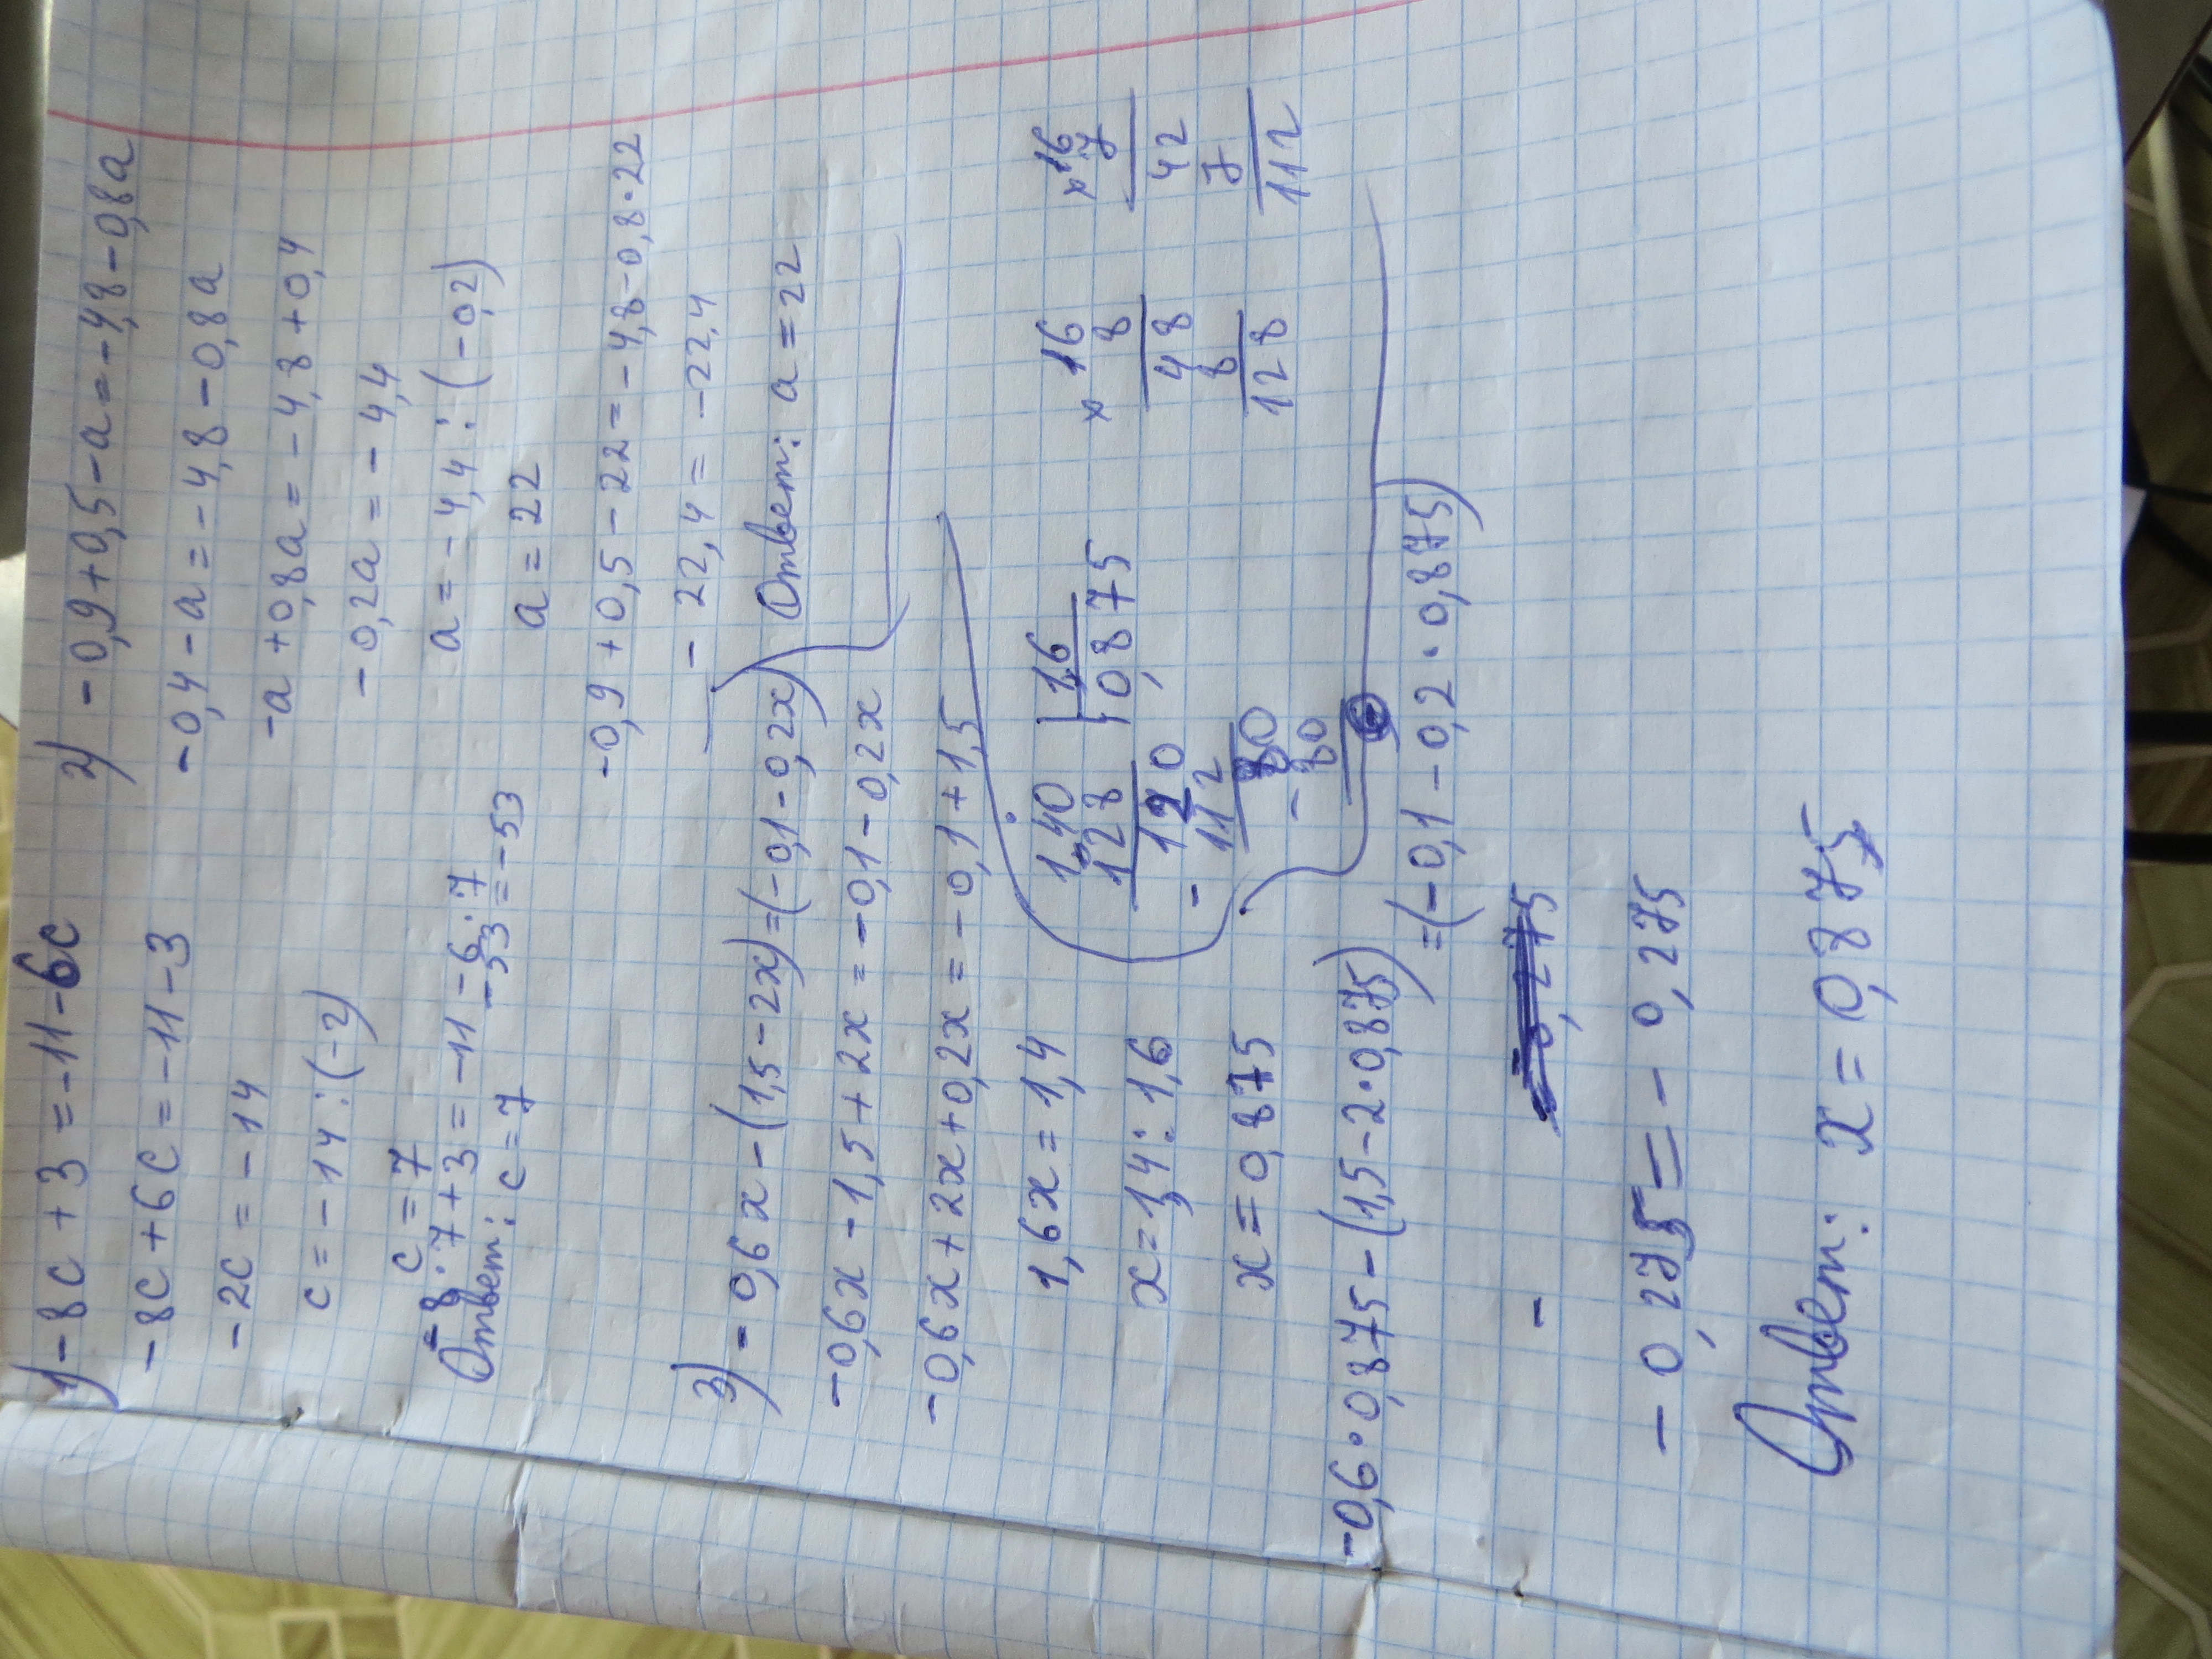 1) -8c + 3 = -11 - 6c
-8c + 6c = -11 - 3
-2c = -14
c = -14 : (-2)
c = 7
-8 · 7 + 3 = -11 - 6 · 7
-53 = -53
Ответ: c = 7
2) -0,9 + 0,5 - a = -4,8 - 0,8a
-0,4 - a = -4,8 - 0,8a
-a + 0,8a = -4,8 + 0,4
-0,2a = -4,4
a = -4,4 : (-0,2)
a = 22
-0,9 + 0,5 - 22 = -4,8 - 0,8 · 22
-22,4 = -22,4
Ответ: a = 22
3) -0,6x - (1,5 - 2x) = (-0,1 - 0,2x)
-0,6x - 1,5 + 2x = -0,1 - 0,2x
-0,6x + 2x + 0,2x = -0,1 + 1,5
1,6x = 1,4
x = 1,4 : 1,6
x = 0,875
1,40 | 1,6
128 0,875
120
- 112
80
- 80
0
× 16
8
48
8
128
× 16
7
42
7
112
-0,6 · 0,875 - (1,5 - 2 · 0,875)
= (-0,1 - 0,2 · 0,875)
-
-0,275 = -0,275
Ответ: x = 0,875